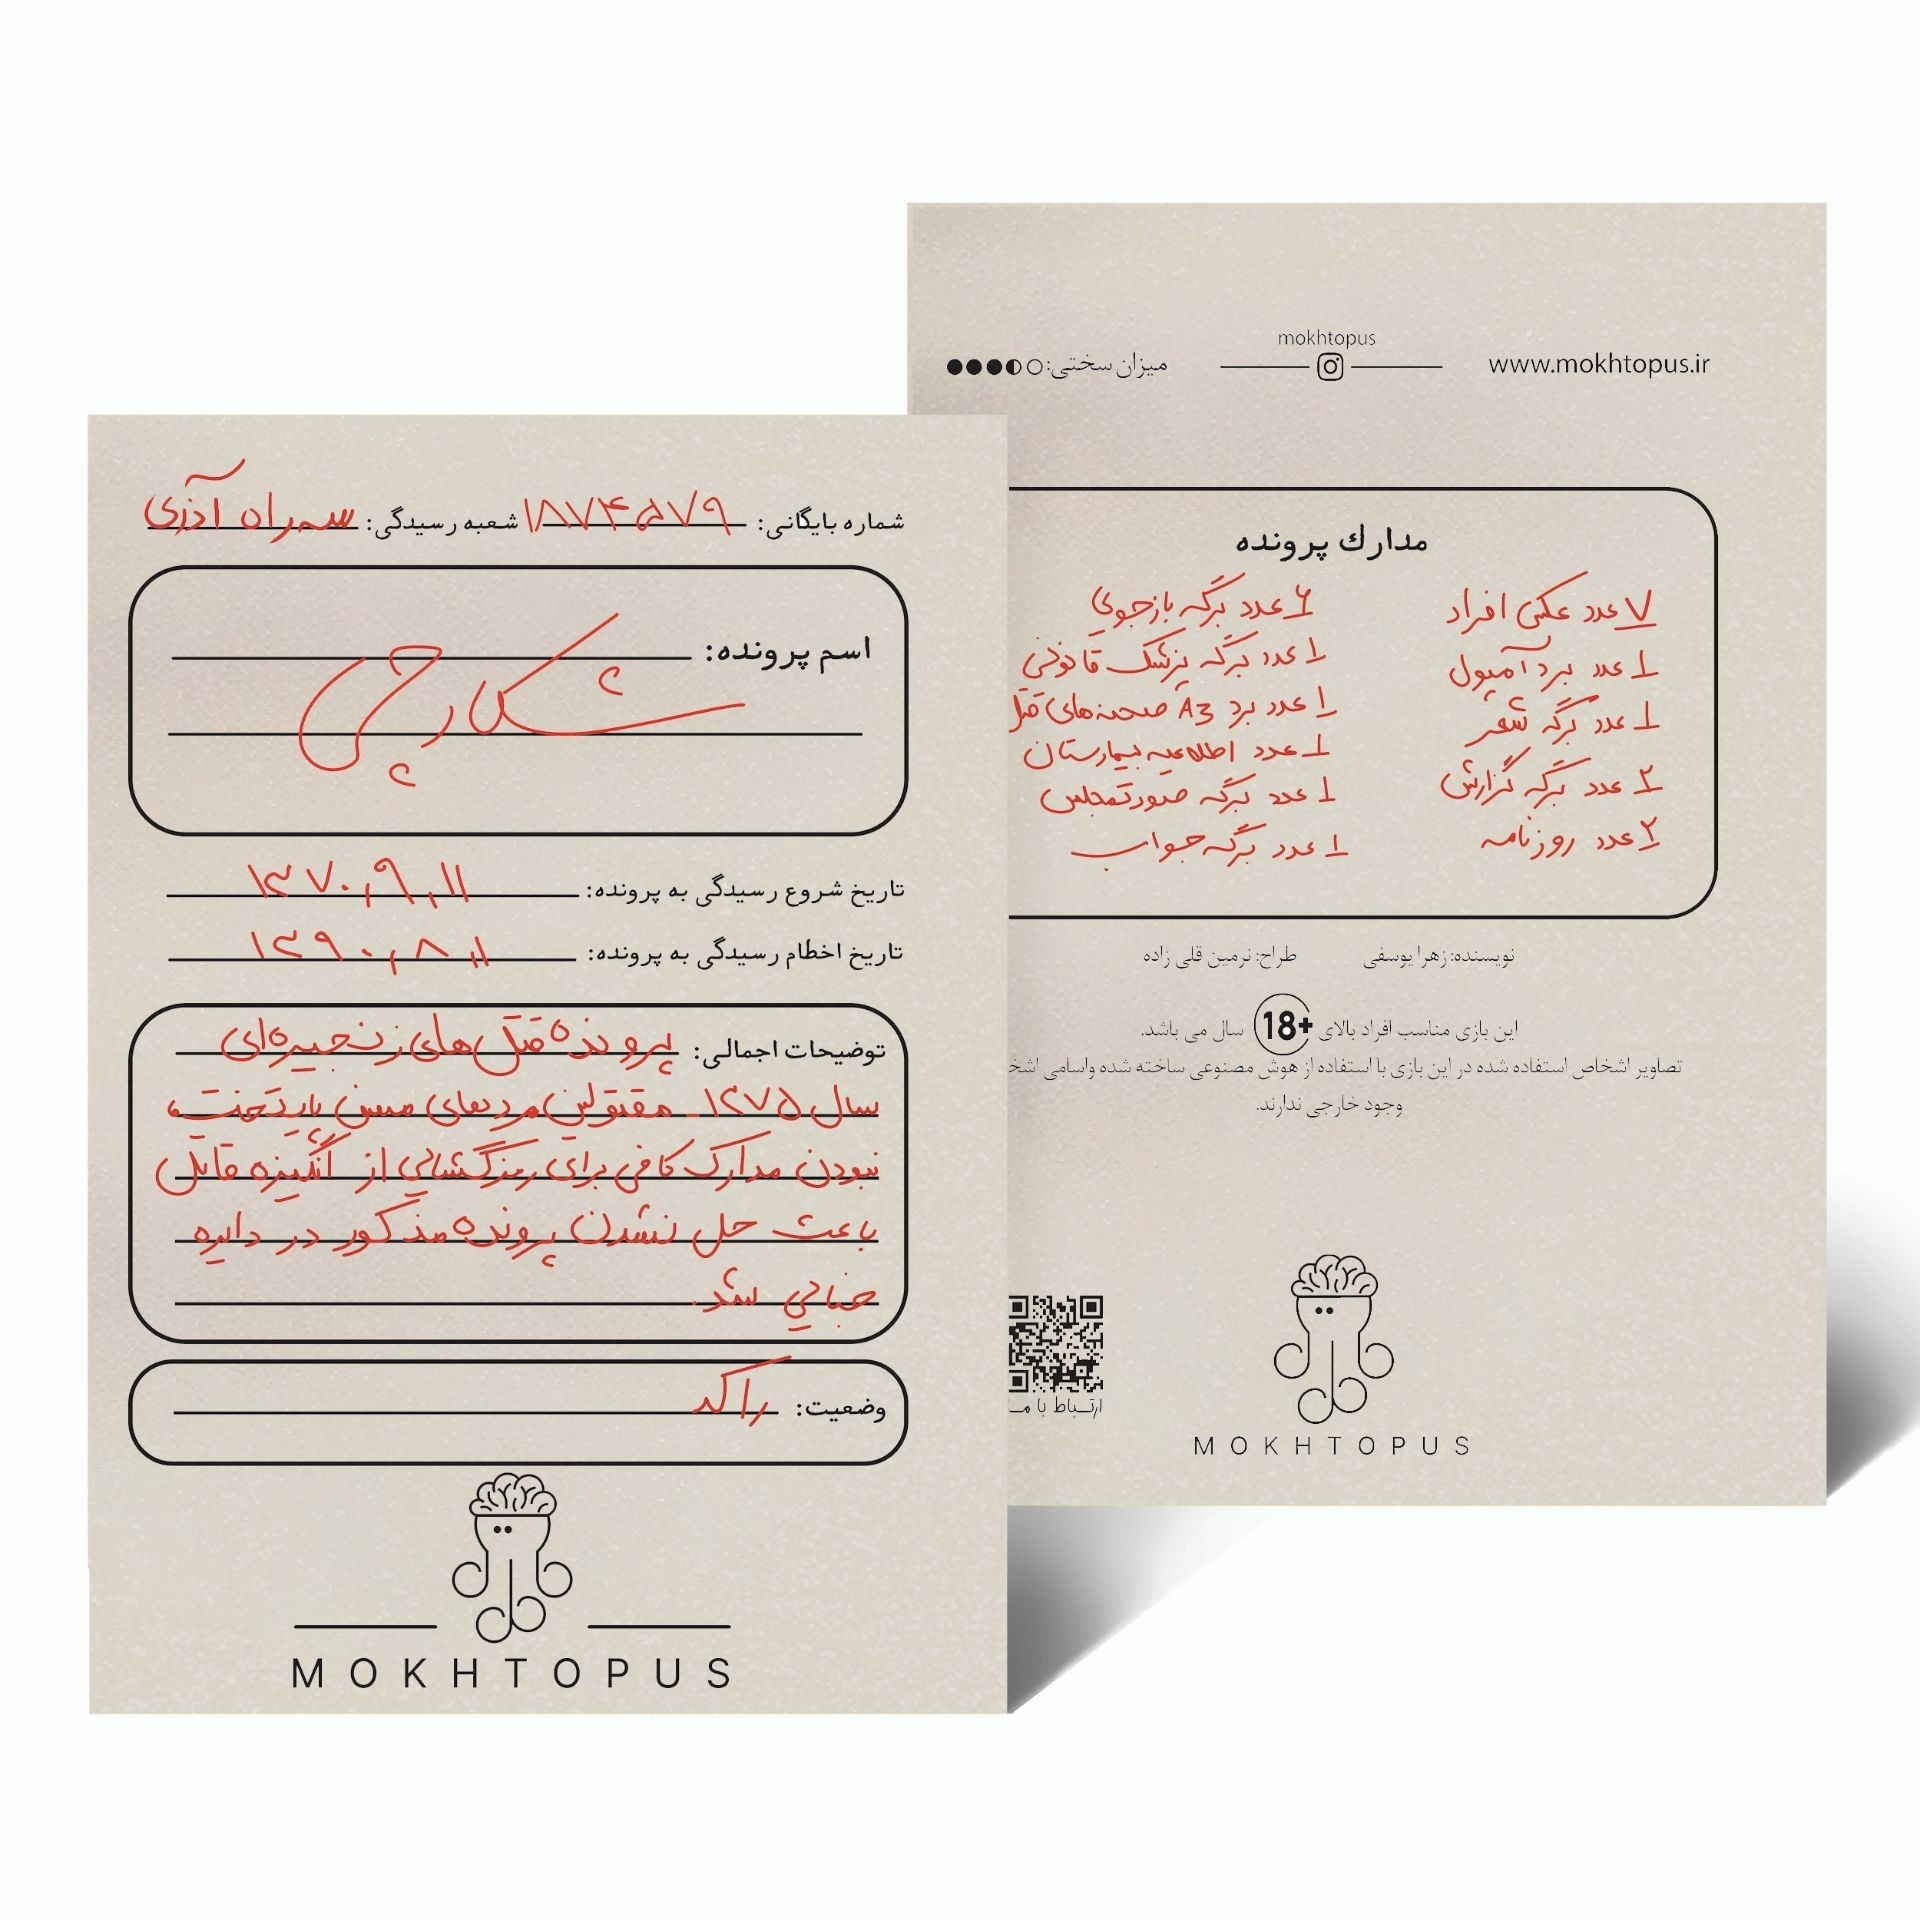 شماره بایگانی: ۱۸۷۴۵۷۹ شعبه رسیدگی: سه راه آذری
اسم پرونده:
شکارچی
تاریخ شروع رسیدگی به پرونده: ۱۳۷۰,۹,۱۱
تاریخ اخطام رسیدگی به پرونده: ۱۳۹۰,۸,۱
توضیحات اجمالی: پرونده قتل های زنجیره‌ای
سال ۱۳۷۵ـ مقتولین مردهای مسن پایتخت،
نبودن مدارک کافی برای رمزگشایی از انگیزه قاتل
باعث حل نشدن پرونده مذکور در دایره
جنایی شد.
وضعیت: راکد
MOKHTOPUS
www.mokhtopus.ir
mokhtopus
میزان سختی:
مدارك پرونده
۷ عدد عکس افراد
۱ عدد برد آمپول
۱ عدد برگه شعر
۲ عدد برگه گزارش
۲ عدد روزنامه
۶ عدد برگه بازجویی
۱ عدد برگه پزشک قانونی
۱ عدد برد A3 صحنه‌های قتل
۱ عدد اطلاعیه بیمارستان
۱ عدد برگه صورتمجلس
۱ عدد برگه جواب
نویسنده: زهرا یوسفی طراح: نرمین قلی زاده
این بازی مناسب افراد بالای 18+ سال می باشد.
تصاویر اشخاص استفاده شده در این بازی با استفاده از هوش مصنوعی ساخته شده واسامی اشخ
وجود خارجی ندارند.
ارتباط با ما
MOKHTOPUS